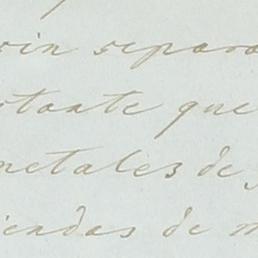 sin separa
stante que
metales de
iendas de m